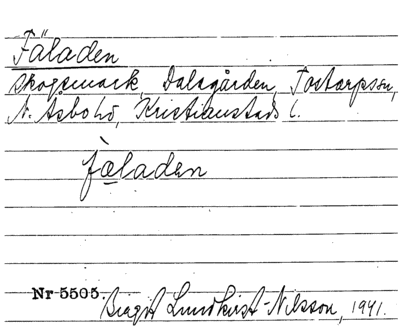 Fäladen
skogsmark, Dalsgården, Tostarpssn,
N. Åsbo hd, Kristianstads l.
fæladen
Nr 5505.
Birgit Lundkvist-Nilsson, 1941.